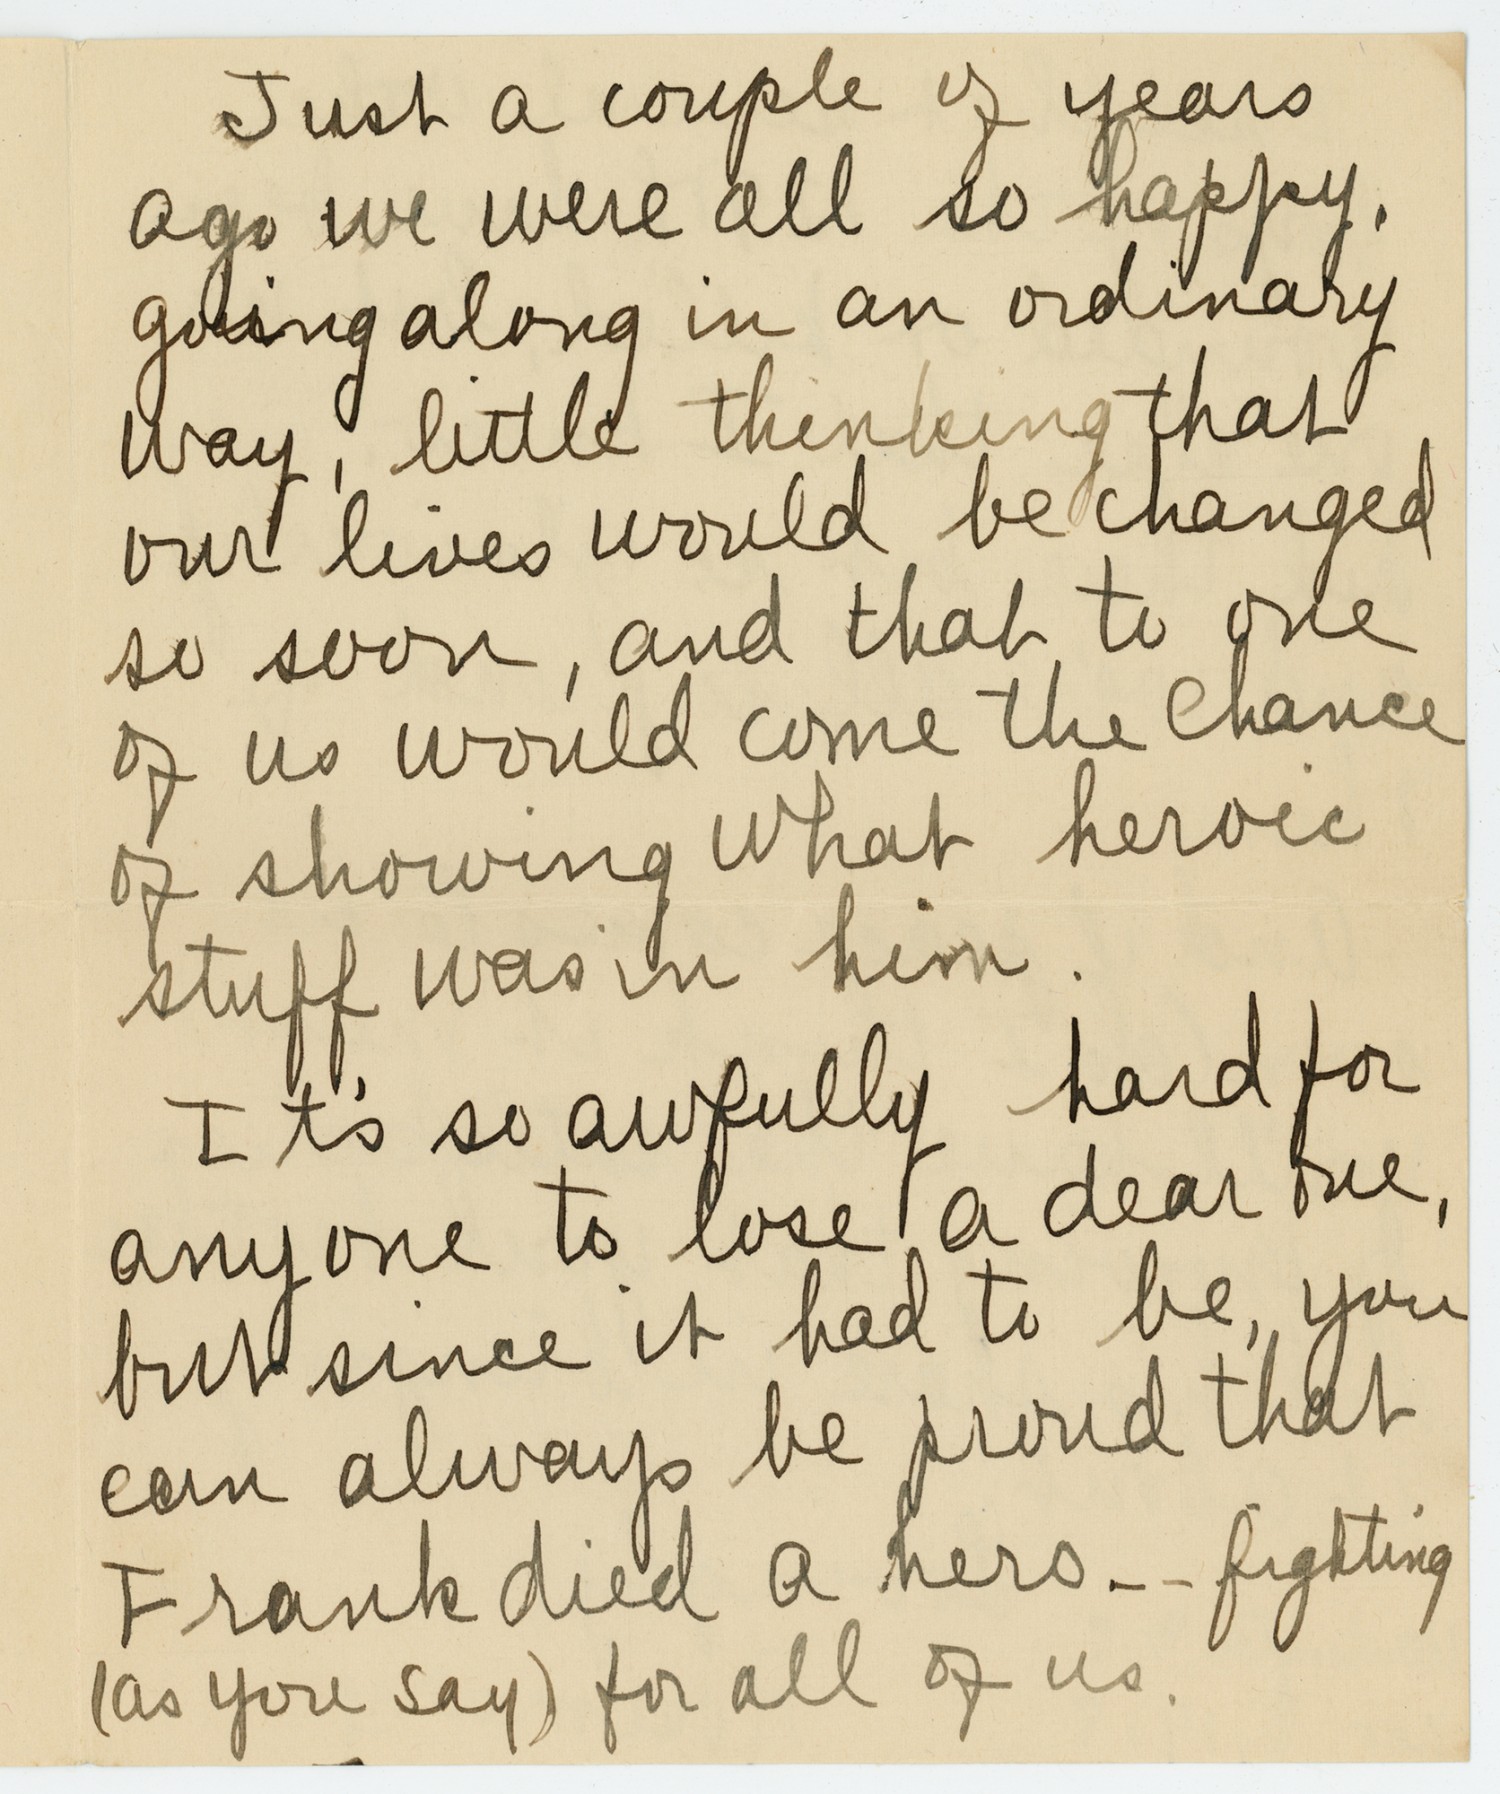 Just a couple of years
ago we were all so happy,
going along in an ordinary
way, little thinking that
our lives would be changed
so soon, and that to one
of us would come the chance
of showing what heroic
stuff was in him.
It's so awfully hard for
anyone to lose a dear one,
but since it had to be, you
can always be proud that
Frank died a hero -- fighting
(as you say) for all of us.